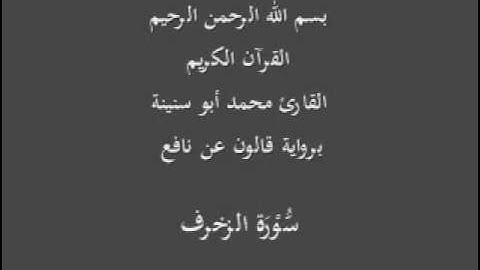 بسم الله الرحمن الرحيم
القرآن الكريم
القارئ محمد أبو سنينة
برواية قالون عن نافع
سُّوْرَة الزخرف